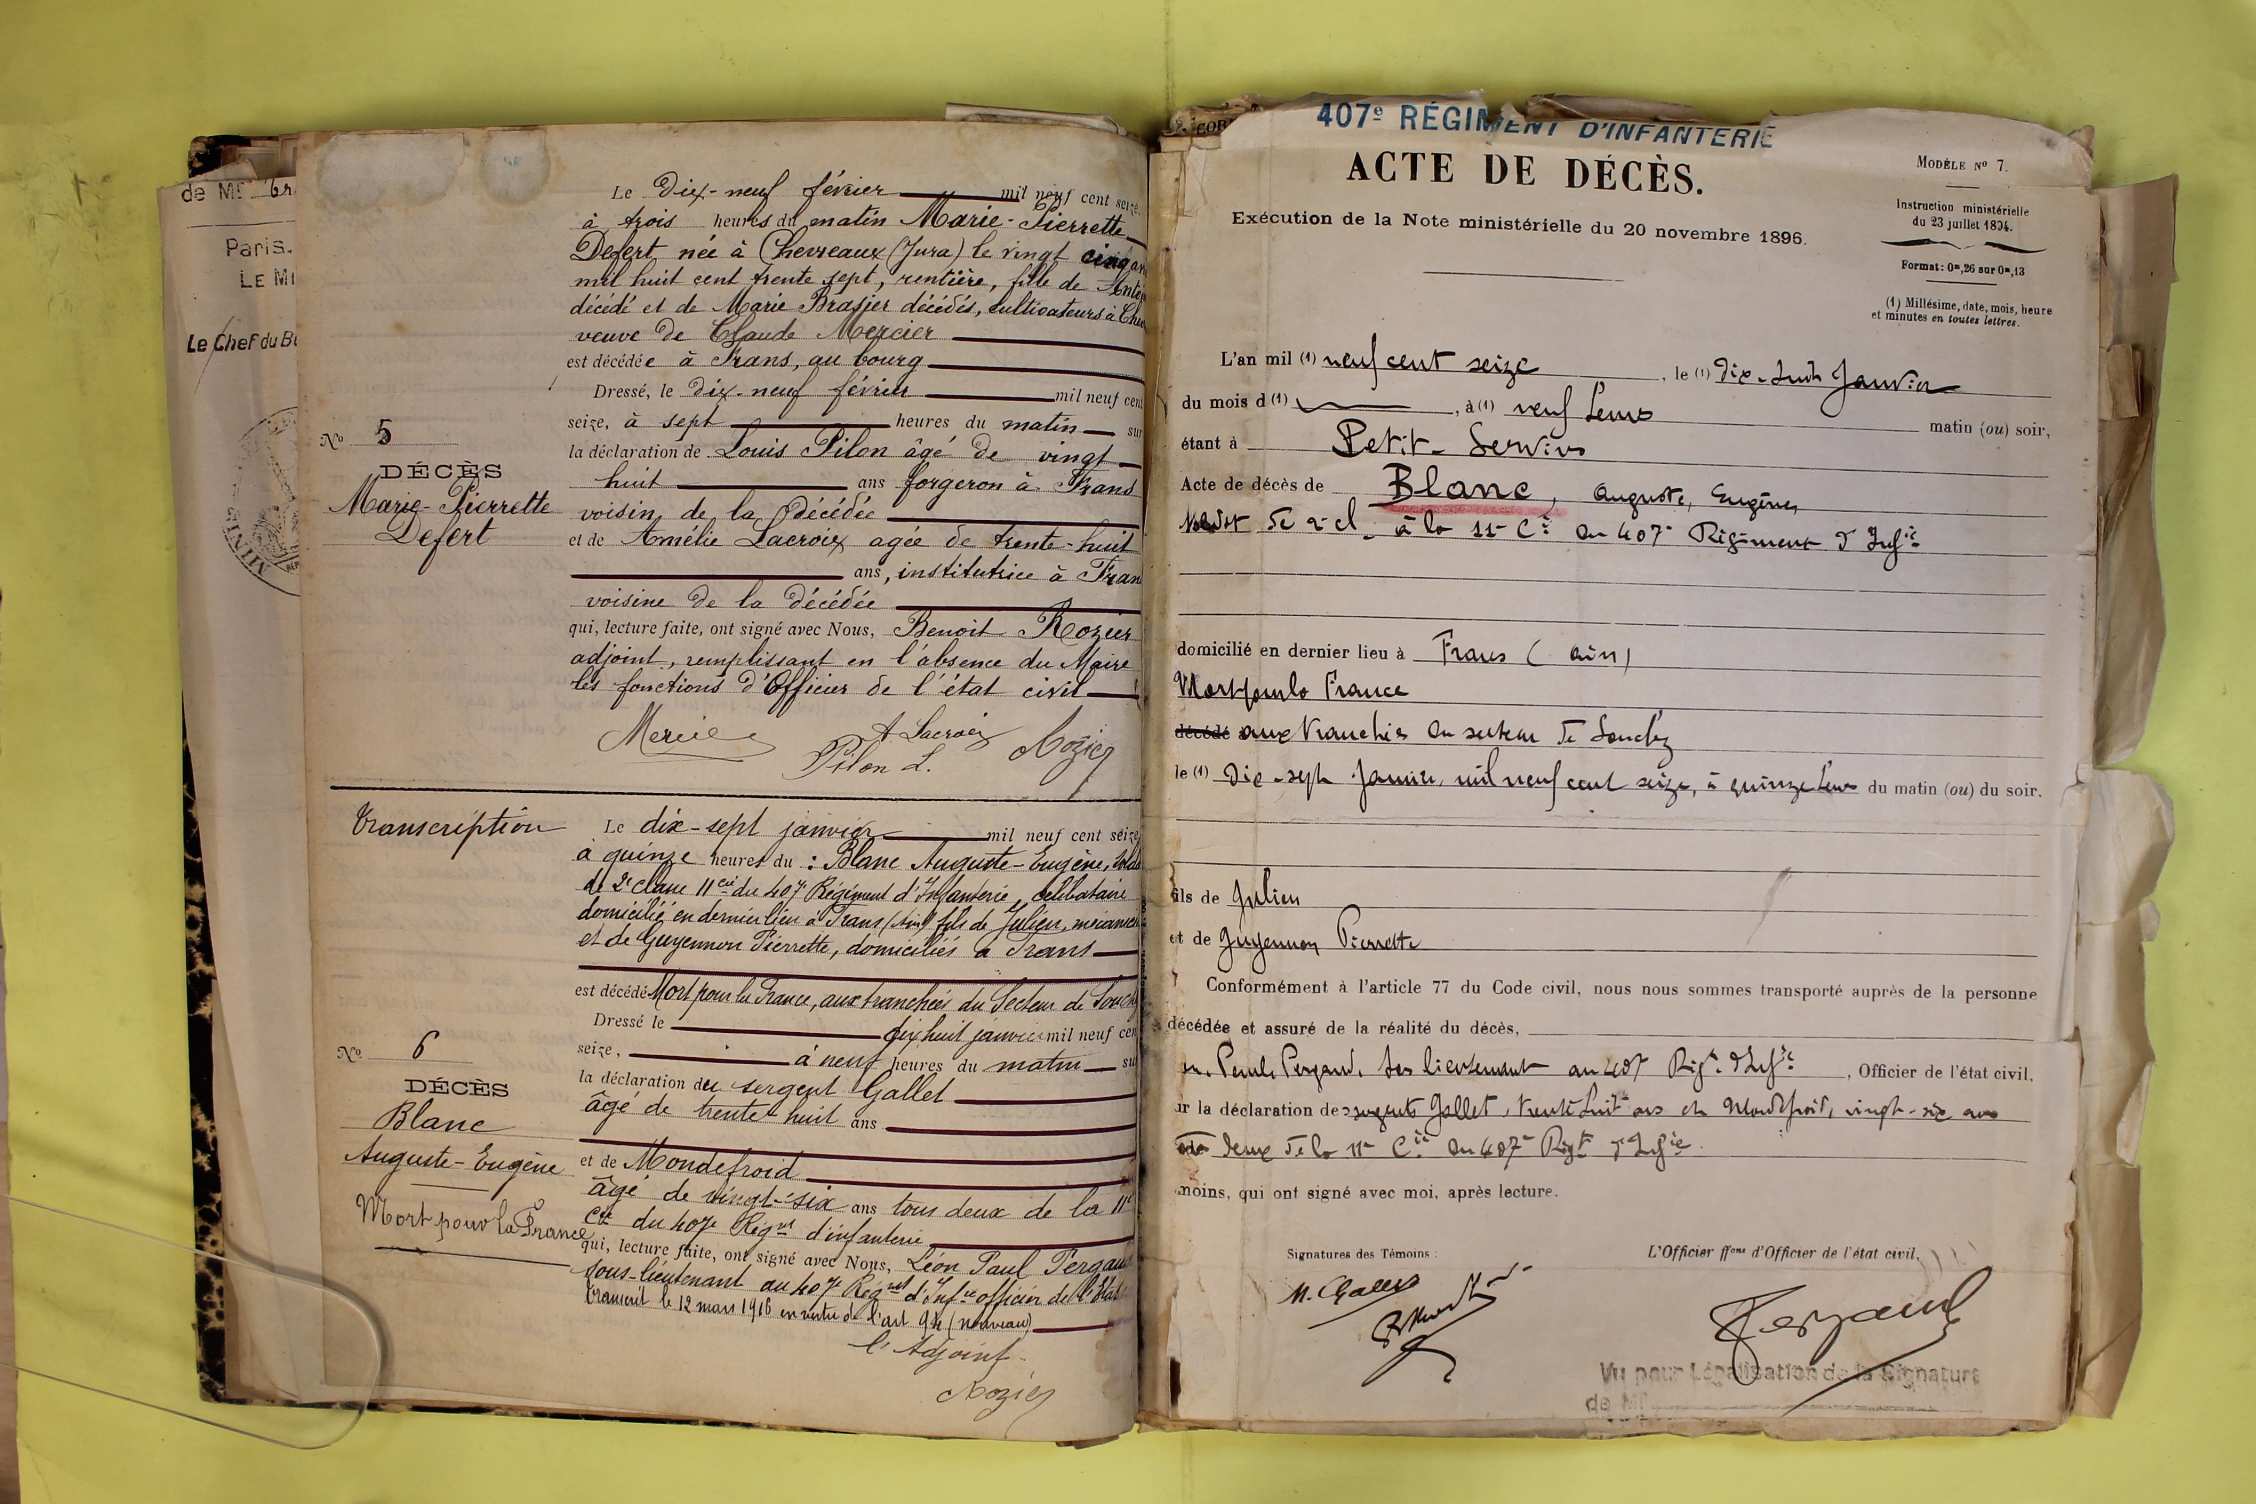 de M
Paris.
LE MI
Le Chef du B
MINI
Le Dix-neuf février mil neuf cent seize,
à trois heures du matin Marie-Pierrette
Defert née à Chevreaux (Jura) le vingt cinq
mil huit cent trente sept, rentière, fille de
décédé et de Marie Brasier décédés, cultivateurs à
veuve de Claude Mercier
est décédée à Frans, au bourg
Dressé, le dix-neuf février mil neuf cent
seize, à sept heures du matin sur
la déclaration de Louis Pilon âgé de vingt
huit ans forgeron à Frans
voisin de la décédée
et de Amélie Lacroix agée de trente-huit
ans, institutrice à Fran
voisine de la décédée
qui, lecture faite, ont signé avec Nous, Benoit Rozier
adjoint, remplissant en l'absence du Maire
les fonctions d'Officier de l'état civil
Mercier A Lacroix Rozier
Pilon L.
No 5
DÉCÈS
Marie-Pierrette
Defert
Transcription
Le dix-sept janvier mil neuf cent seize
à quinze heures du : Blanc Auguste-Eugène,
de 2e classe 11e cie du 407e Régiment d'Infanterie, célibataire
domicilié en dernier lieu à Frans (Ain) fils de Julien,
et de Guyennon Pierrette, domiciliés à Frans
est décédé Mort pour la France, aux tranchées du Secteur de
Dressé le dix huit janvier mil neuf cen
seize, à neuf heures du matin su
la déclaration des sergent Gallet
âgé de trente-huit ans
et de Mondefroid
âgé de vingt-six ans tous deux de la 11e
Cie du 407e Régnt d'infanterie
qui, lecture faite, ont signé avec Nous, Léon Paul Pergaud
sous-lieutenant au 407e Régnt d'Infie officier de l'état
transcrit le 12 mars 1916 en vertu de l'art 94 (nouveau)
l'Adjoint
Rozier
No 6
DÉCÈS
Blanc
Auguste-Eugène
Mort pour la France
407e RÉGIMENT D'INFANTERIE
ACTE DE DÉCÈS.
Exécution de la Note ministérielle du 20 novembre 1896.
MODÈLE No 7.
Instruction ministérielle
du 23 juillet 1894.
Format: 0m,26 sur 0m,13
(1) Millésime, date, mois, heure
et minutes en toutes lettres.
L'an mil (1) neuf cent seize, le (1) dix-huit Janvier
du mois d (1), à (1) neuf heures matin (ou) soir,
étant à Petit-Servins
Acte de décès de Blanc, Auguste, Eugène,
Soldat de 2e cl. à la 11e Cie du 407e Régiment d'Infie
domicilié en dernier lieu à Frans (Ain)
Mort pour la France
décédé aux tranchées du secteur de Souchez
le (1) Dix-sept Janvier mil neuf cent seize, à quinze heures du matin (ou) du soir.
fils de Julien
et de Guyennon Pierrette
Conformément à l'article 77 du Code civil, nous nous sommes transporté auprès de la personne
décédée et assuré de la réalité du décès,
Paul Pergaud, Sous lieutenant au 407 Régt d'Infie, Officier de l'état civil,
ur la déclaration des sergents Gallet, trente huit ans et Mondefroid, vingt-six ans
deux de la 11e Cie du 407e Régt d'Infie
moins, qui ont signé avec moi, après lecture.
Signatures des Témoins :
L'Officier ffons d'Officier de l'état civil,
M. Gallet
Pergaud
Vu pour Légalisation de la Signature
de M